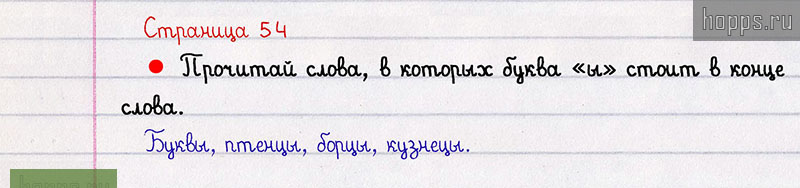 hopps.ru
Страница 54
• Прочитай слова, в которых буква «ы» стоит в конце
слова.
Буквы, птенцы, борцы, кузнецы.